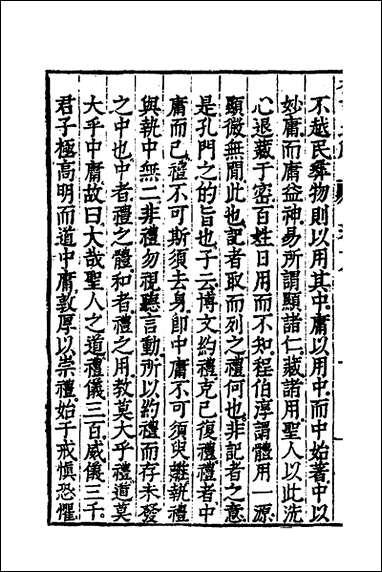 不越民彝物則以用其中庸以用中而中始著中以
妙庸而庸益神易所謂顯諸仁藏諸用聖人以此洗
心退藏于密百姓日用而不知程伯淳謂體用一源
顯微無間此也記者取而列之禮何也非記者之意
是孔門之的旨也子云博文約禮克己復禮禮者中
庸而已禮不可斯須去身即中庸不可須臾離執禮
與執中無二非禮勿視聽言動所以約禮而存未發
之中也中者禮之體和者禮之用教莫大乎禮道莫
大乎中庸故曰大哉聖人之道禮儀三百威儀三千
君子極高明而道中庸敦厚以崇禮始于戒慎恐懼